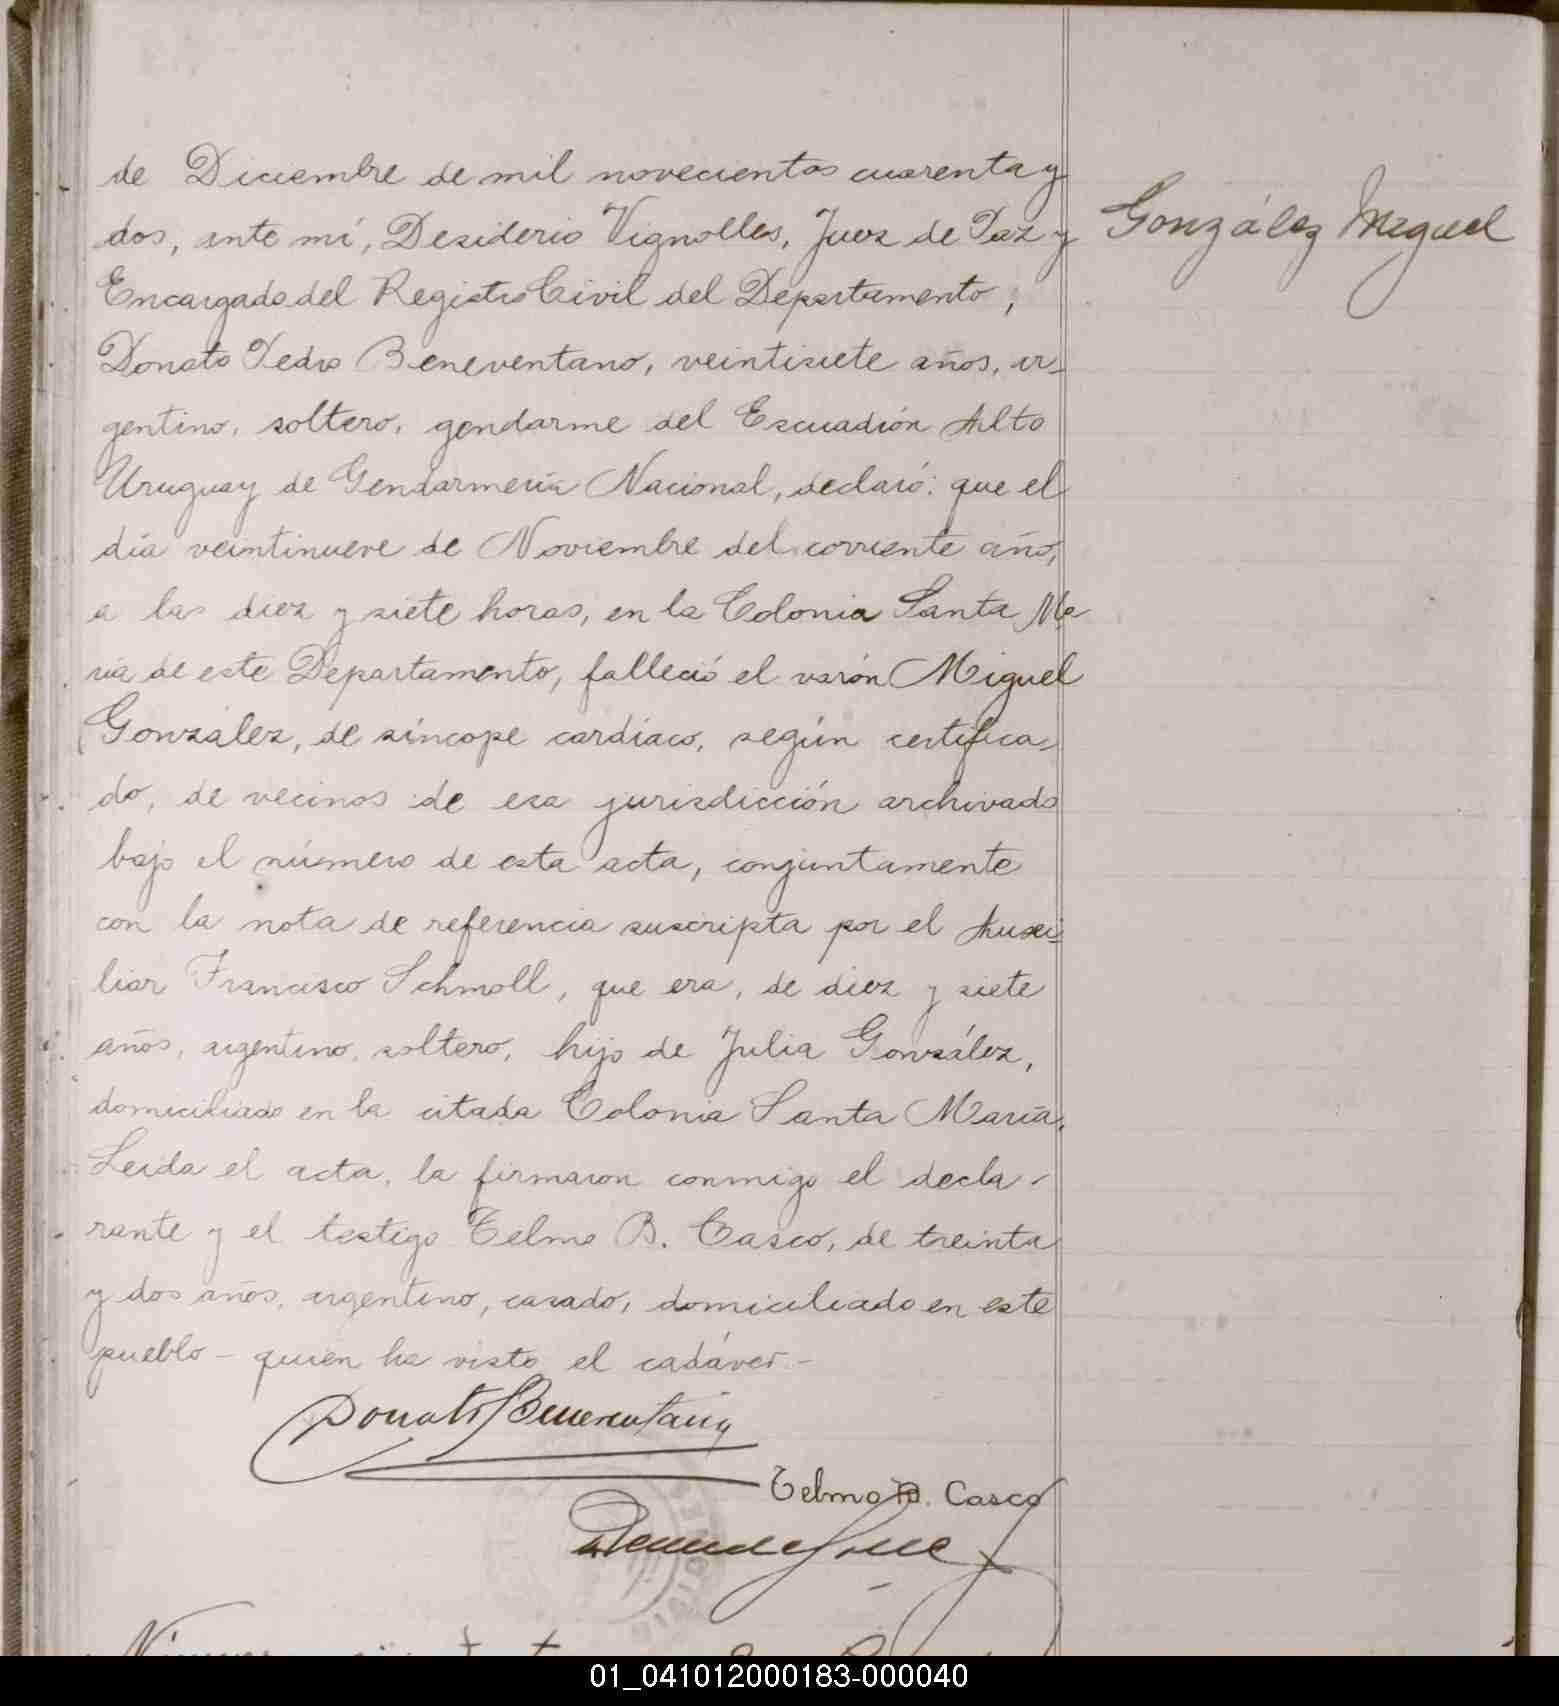 de Diciembre de mil novecientos cuarenta y
dos, ante mí, Desiderio Vignolles, Juez de Paz y
González Miguel
Encargado del Registro Civil del Departamento,
Donato Pedro Beneventano, veintisiete años, ar-
gentino, soltero, gendarme del Escuadrón Alto
Uruguay de Gendarmería Nacional, declaró: que el
día veintinueve de Noviembre del corriente año,
a las diez y siete horas, en la Colonia Santa Ma
ría de este Departamento, falleció el varón Miguel
González, de síncope cardíaco, según certifica-
do, de vecinos de esa jurisdicción archivado
bajo el número de esta acta, conjuntamente
con la nota de referencia suscripta por el Auxi-
liar Francisco Schmoll, que era, de diez y siete
años, argentino, soltero, hijo de Julia González,
domiciliado en la citada Colonia Santa María.
Leida el acta, la firmaron conmigo el decla-
rante y el testigo Telmo B. Casco, de treinta
y dos años, argentino, casado, domiciliado en este
pueblo - quien ha visto el cadáver.-
Donato Beneventano
Telmo B. Casco
01_041012000183-000040